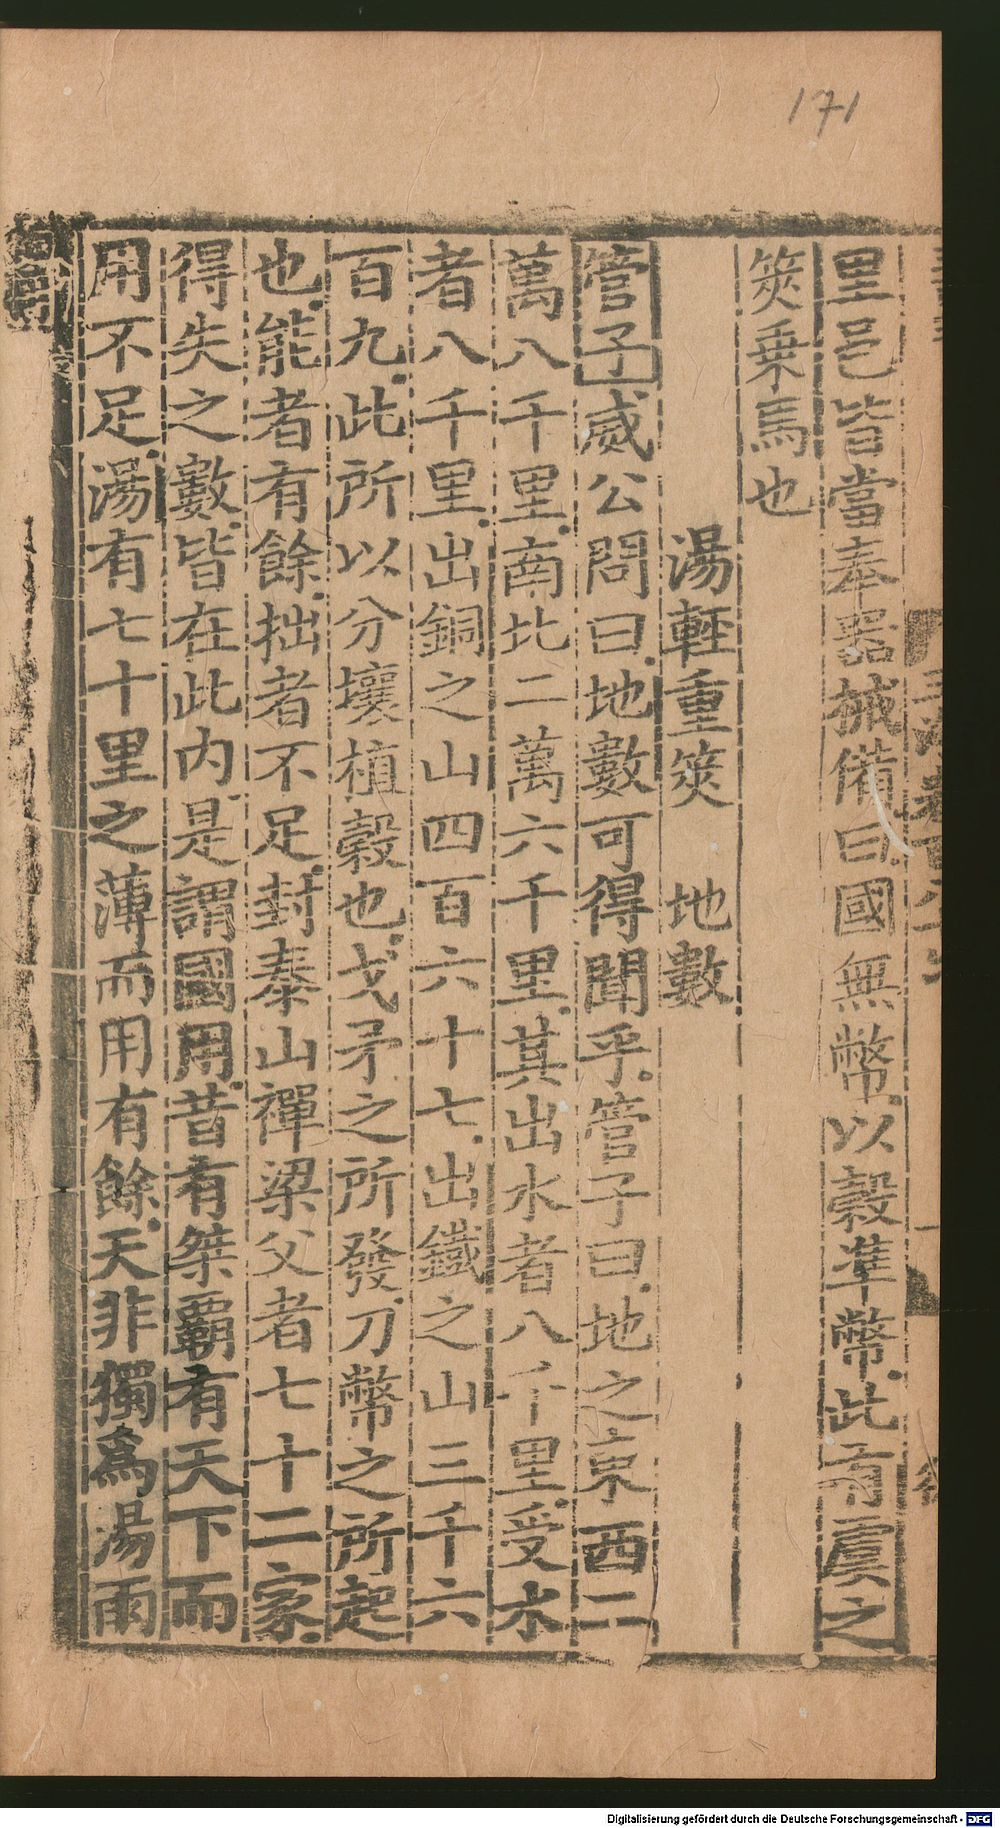 171
里邑皆當奉器械備曰國無幣以穀準幣此有虞之
筴乗馬也
湯輕重筴 地數
管子威公問曰地數可得聞乎管子曰地之東西二
萬八千里南北二萬六千里其出水者八千里受水
者八千里出銅之山四百六十七出鐵之山三千六
百九此所以分壤植穀也戈矛之所發刀幣之所起
也能者有餘拙者不足封泰山禪梁父者七十二家
得失之數皆在此内是謂國用昔有桀覇有天下而
用不足湯有七十里之薄而用有餘天非獨爲湯雨
Digitalisierung gefördert durch die Deutsche Forschungsgemeinschaft - DFG